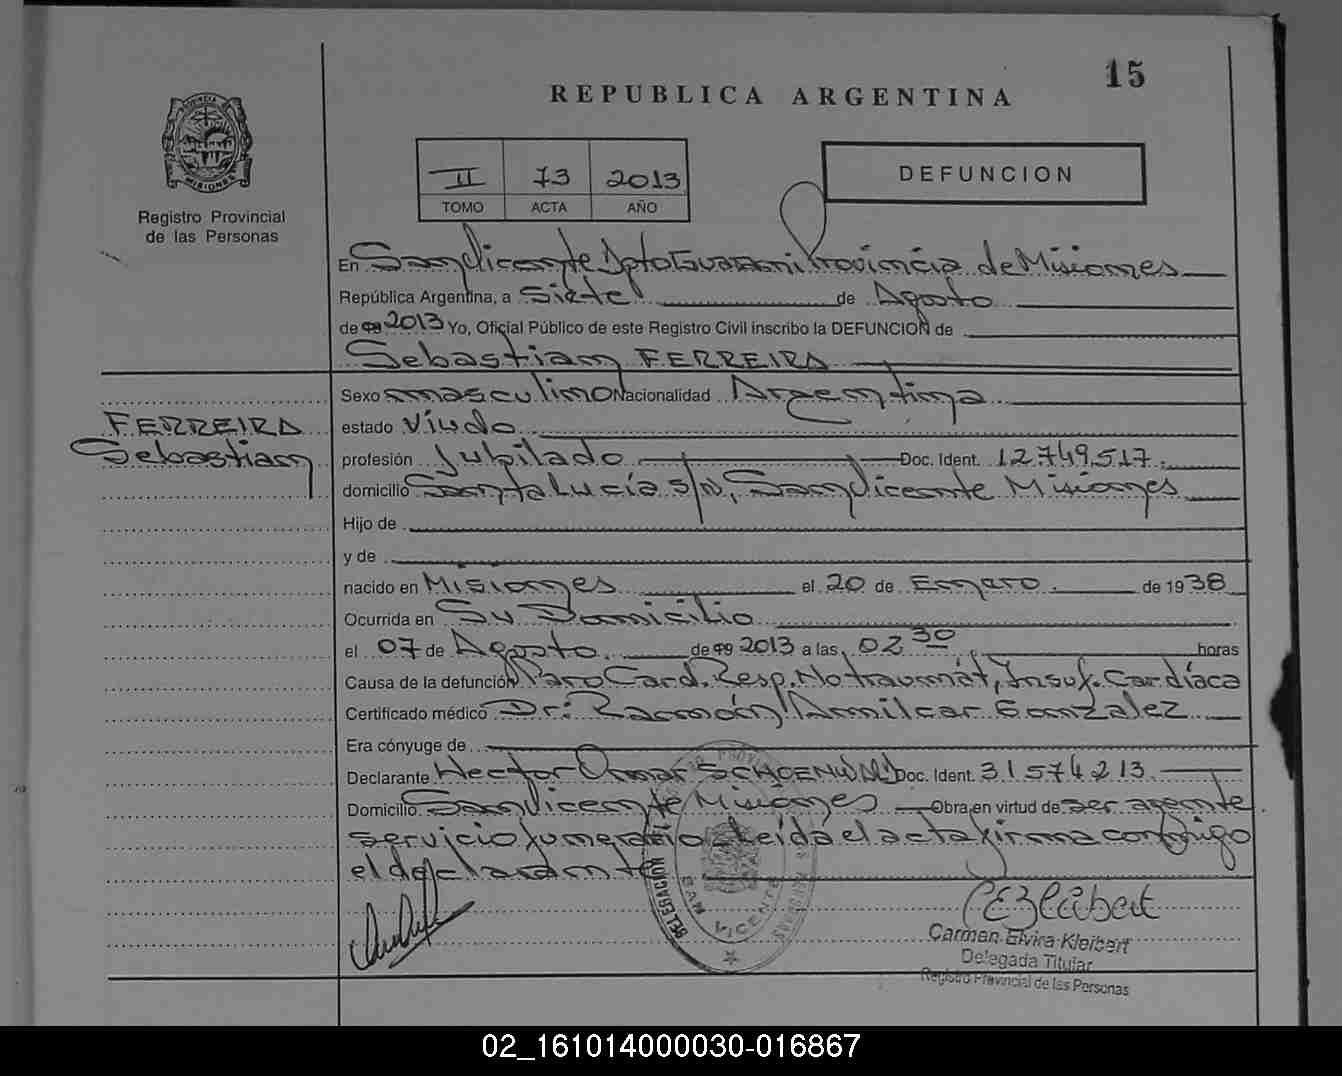 15
REPUBLICA ARGENTINA
II 73 2013
TOMO ACTA AÑO
DEFUNCION
PROVINCIA DE MISIONES
Registro Provincial
de las Personas
En San Vicente Dpto Guaraní Provincia de Misiones
República Argentina, a Siete de Agosto
de 2013 Yo, Oficial Público de este Registro Civil inscribo la DEFUNCION de
Sebastian FERREIRA
FERREIRA
Sebastian
Sexo masculino Nacionalidad Argentina
estado Viudo
profesión Jubilado Doc. Ident. 12.749.517.
domicilio Santa Lucía s/n, San Vicente Misiones
Hijo de
y de
nacido en Misiones el 20 de Enero de 1938
Ocurrida en Su Domicilio
el 07 de Agosto de 2013 a las 02 30 horas
Causa de la defunción Paro Card. Resp. No traumát, Insuf. Cardíaca
Certificado médico Dr: Ramón Amilcar Gonzalez
Era cónyuge de
Declarante Hector Omar Doc. Ident. 31574213
Domicilio San Vicente Misiones Obra en virtud de ser agente
servicio funerario Leída el acta firma conmigo
el declarante
DELEGACION
SAN VICENTE
Carmen Elvira Kleibert
Delegada Titular
Registro Provincial de las Personas
02_161014000030-016867